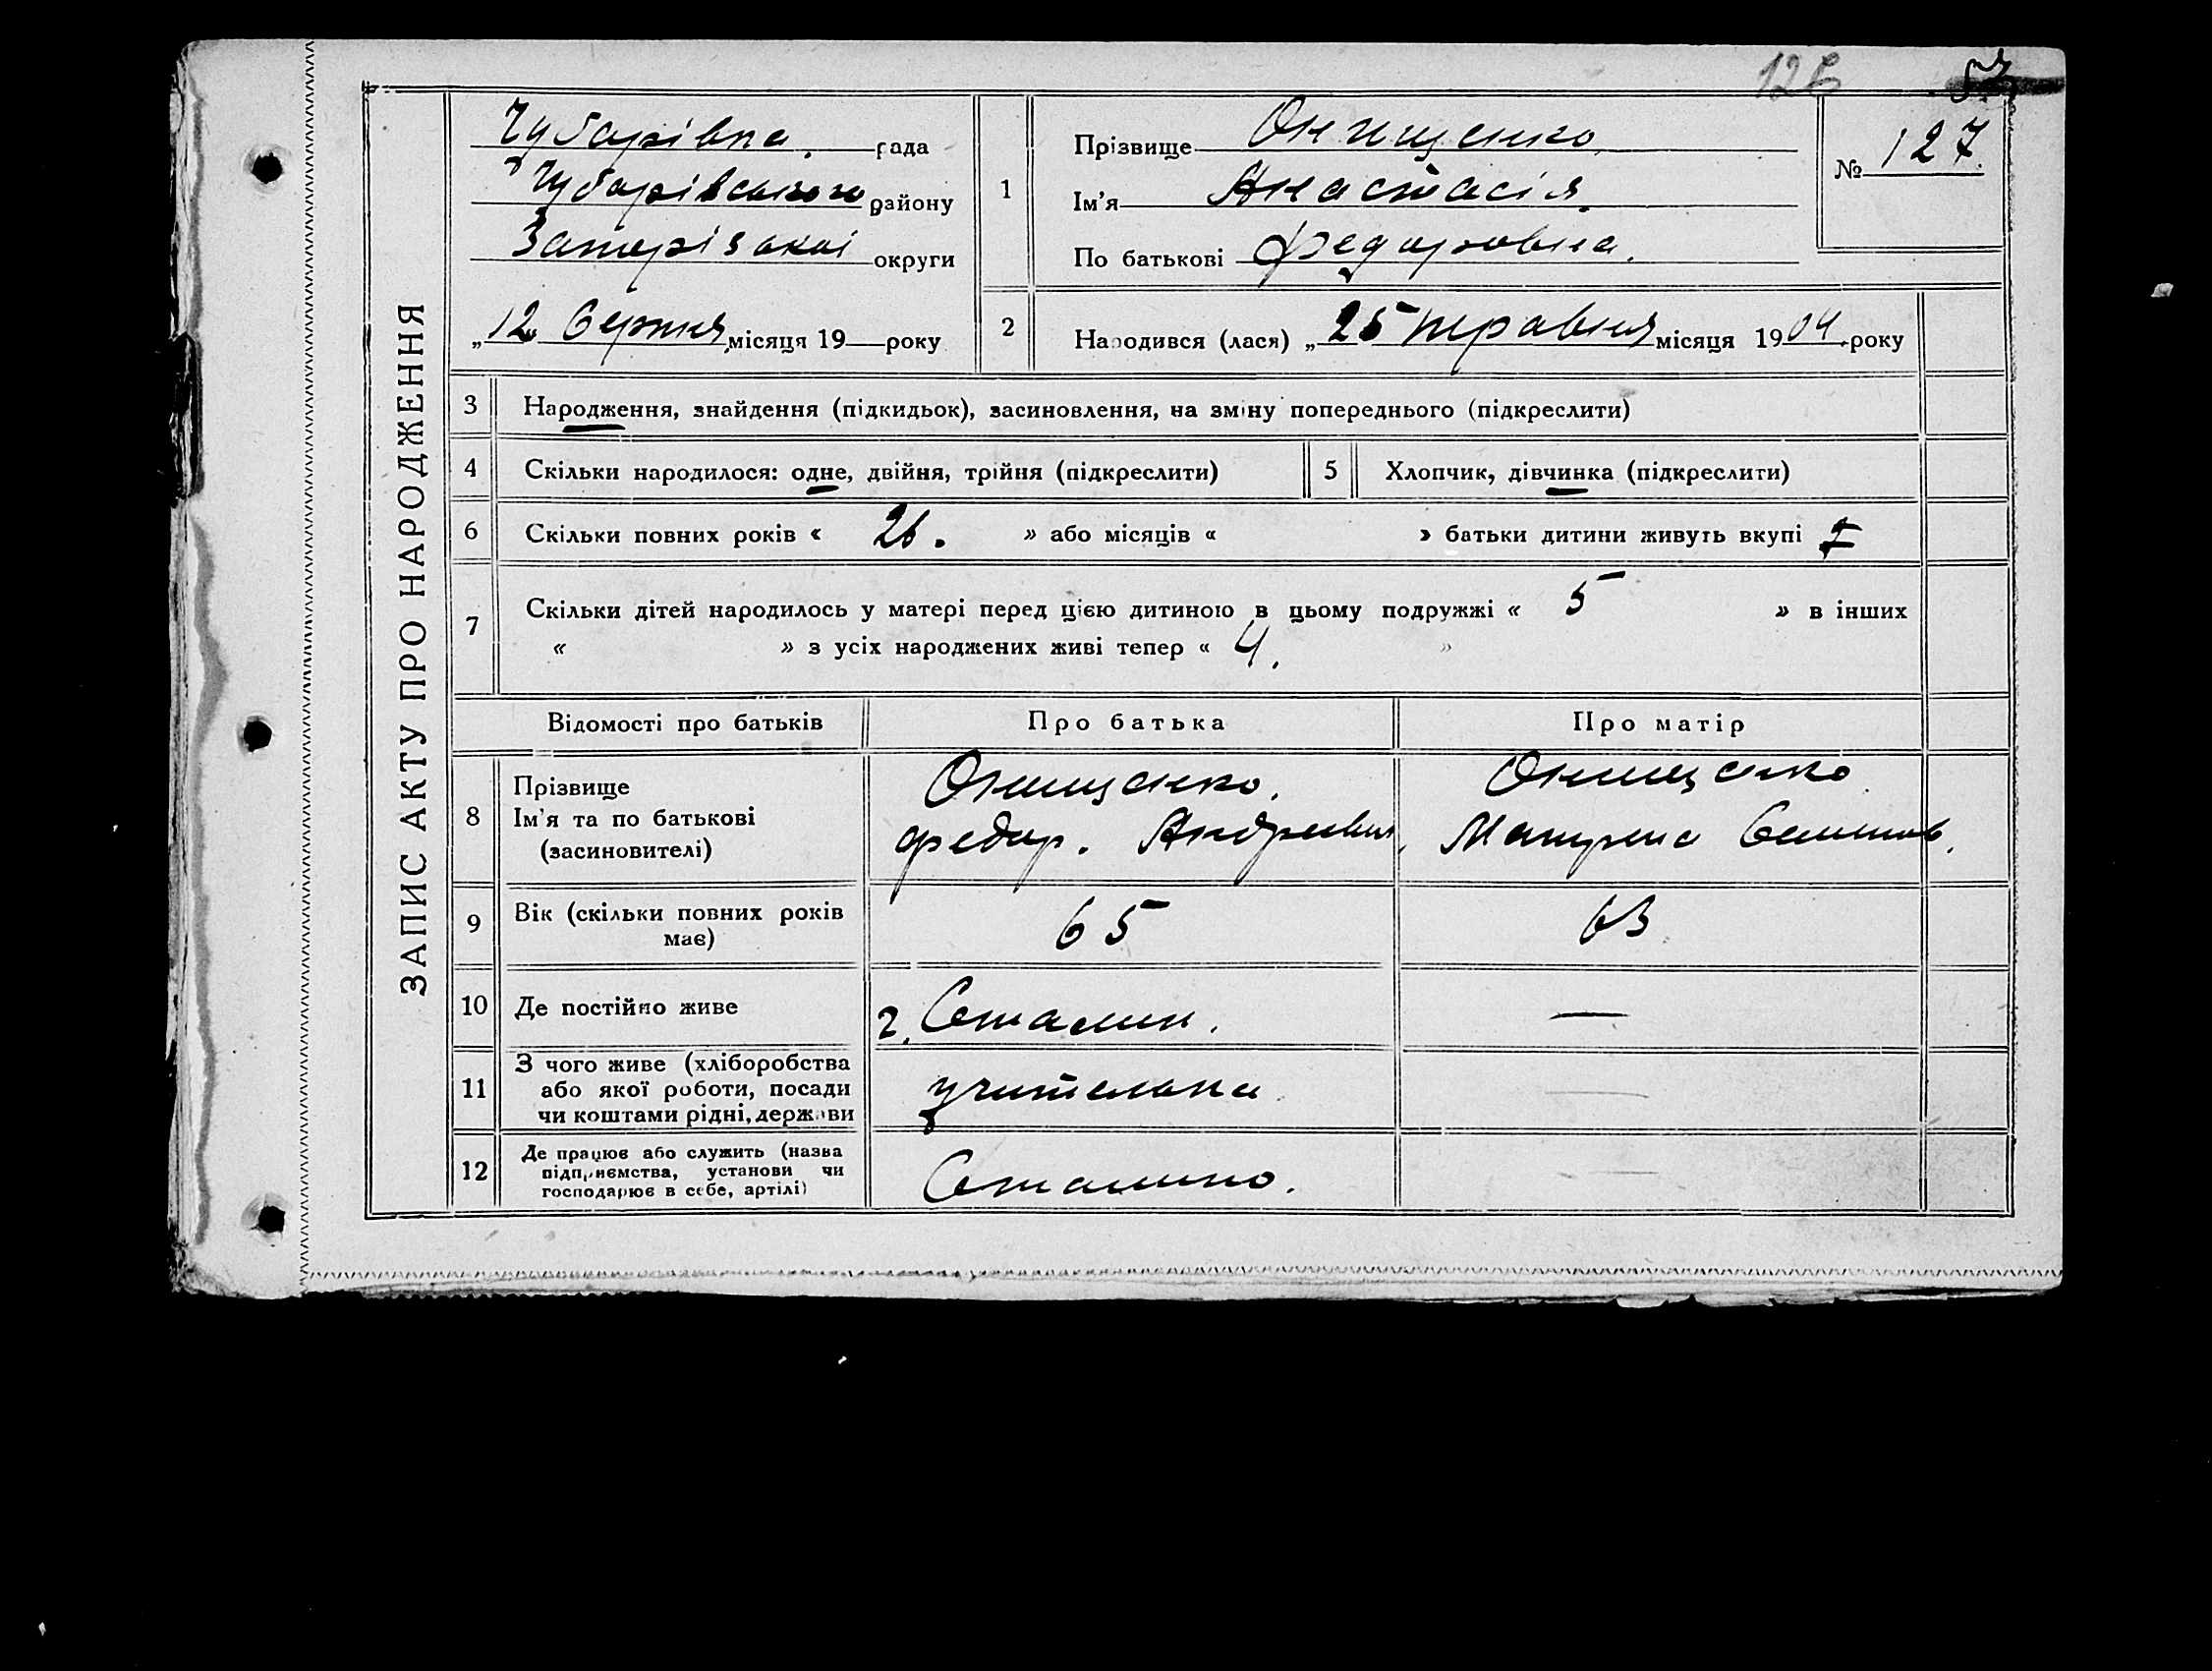 57
127
ЗАПИС АКТУ ПРО НАРОДЖЕННЯ
Чубарівка. рада
Чубарівського району
Запорізької округи
„12" Серпня місяця 19 року
1
Прізвище Онищенко
Ім'я Анастасія
По батькові Федоровна.
№ 127.
2
Народився (лася) „25 травня місяця 1904 року
3 Народження, знайдення (підкидьок), засиновлення, на зміну попереднього (підкреслити)
4 Скільки народилося: одне, двійня, трійня (підкреслити)
5 Хлопчик, дівчинка (підкреслити)
6 Скільки повних років « 26. » або місяців « » батьки дитини живуть вкупі
7 Скільки дітей народилось у матері перед цією дитиною в цьому подружжі « 5 » в інших
« » з усіх народжених живі тепер « 4. »
Відомості про батьків Про батька Про матір
8 Прізвище
Ім'я та по батькові
(засиновителі)
Онищенко.
Федор. Андреевич
Онищенко
Матрена Семенов.
9 Вік (скільки повних років
має)
65
63
10 Де постійно живе
г. Сталин.
—
11 З чого живе (хліборобства
або якої роботи, посади
чи коштами рідні, держави
учителька
—
12 Де працює або служить (назва
підприємства, установи чи
господарює в себе, артілі)
Сталино.
—